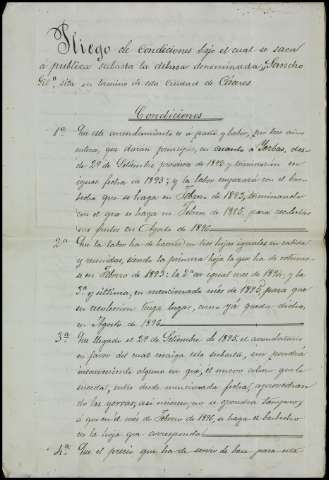 Pliego de condiciones bajo el cual se saca
á publica subasta la dehesa denominada "Sancho
Gil", sita en termino de esta Ciudad de Cáceres.
Condiciones
1ª. Que este arrendamiento es á pasto y labor, por tres años
enteros, que darán principio, en cuanto a Yerbas, des-
de 29 de Setiembre proximo de 1892 y terminarán en
igual fecha de 1895; y la labor empezará con el bar-
becho que se haga en Febrero de 1893, terminando
con el que se haga en Febrero de 1895, para recolectar
sus frutos en Agosto de 1896.
2ª. Que la labor ha de hacerse en tres hojas iguales en cabida
y reunidas, siendo la primera hoja la que ha de
se en Febrero de 1893: la 2ª en igual mes de 1894, y la
3ª y última, en mencionado mes de 1895, para que
su recoleccion tenga lugar, como ya queda dicho,
en Agosto de 1896.
3ª. Que llegado el 29 de Setiembre de 1895, el arrendatario
en favor del cual recaiga esta subasta, no pondrá
inconveniente alguno en que, el nuevo colono que le
suceda, entre desde mencionada fecha, aprovechando
las yerbas, asi mismo, no se opondrá tampoco,
á que en el mes de Febrero de 1896, se haga el barbecho
en la hoja que corresponda.
4ª. Que el precio que ha de servir de base para esta